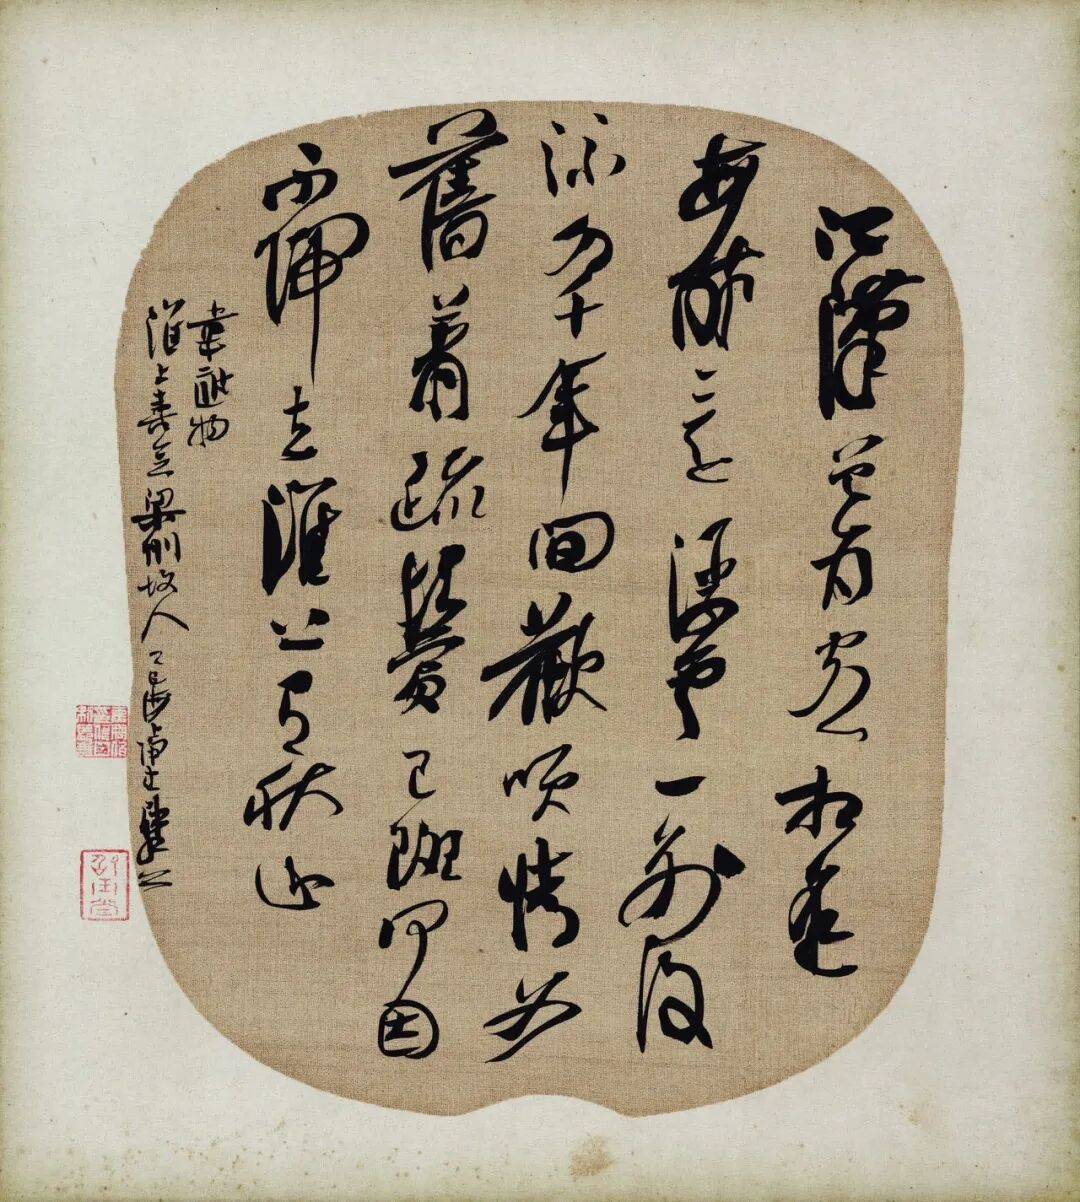 江漢曾為客相逢
每醉還浮雲一別後
流水十年間歡笑情如
舊蕭疏鬢已斑何因
不歸去淮上有秋山
韋應物
淮上喜會梁州故人 乙巳海上